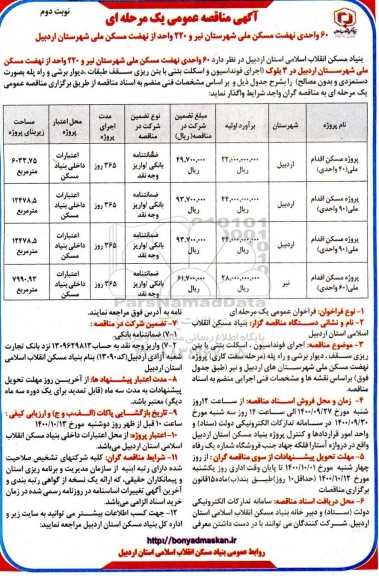 نوبت دوم
آگهی مناقصه عمومی یک مرحله ای
۶۰ واحدی نهضت مسکن ملی شهرستان نیر و ۲۲۰ واحد از نهضت مسکن ملی شهرستان اردبیل
بنیاد مسکن انقلاب اسلامی استان اردبیل در نظر دارد ۶۰ واحدی نهضت مسکن ملی شهرستان نیر و ۲۲۰ واحد از نهضت مسکن
ملی شهرستان اردبیل در ۳ بلوک (اجرای فونداسیون و اسکلت بتنی با بتن ریزی سقف طبقات ،دیوار برشی و راه پله بصورت
دستمزدی و بدون مصالح) را بشرح جدول ذیل و بر اساس مشخصات فنی منضم به اسناد مناقصه از طریق برگزاری مناقصه عمومی
یک مرحله ای به مناقصه گران واجد شرایط واگذار نماید:
نام پروژه شهرستان برآورد اولیه مبلغ تضمین شرکت در مناقصه(ریال) نوع تضمین شرکت در مناقصه مدت اجرای پروژه محل اعتبار پروژه مساحت زیربنای پروژه
پروژه مسکن اقدام ملی(۴۰ واحدی) اردبیل ۲۲,۰۰۰,۰۰۰,۰۰۰ ریال ۴۹,۷۰۰,۰۰۰ ریال ضمانتنامه بانکی/واریز وجه نقد ۳۶۵ روز اعتبارات داخلی بنیاد مسکن ۶۰۳۳,۷۵ مترمربع
پروژه مسکن اقدام ملی(۹۰ واحدی) اردبیل ۴۴,۰۰۰,۰۰۰,۰۰۰ ریال ۹۳,۷۰۰,۰۰۰ ریال ضمانتنامه بانکی/واریز وجه نقد ۳۶۵ روز اعتبارات داخلی بنیاد مسکن ۱۲۴۷۸,۵ مترمربع
پروژه مسکن اقدام ملی(۹۰ واحدی) اردبیل ۴۴,۰۰۰,۰۰۰,۰۰۰ ریال ۹۳,۷۰۰,۰۰۰ ریال ضمانتنامه بانکی/واریز وجه نقد ۳۶۵ روز اعتبارات داخلی بنیاد مسکن ۱۲۴۷۸,۵ مترمربع
پروژه مسکن اقدام ملی(۶۰ واحدی) نیر ۲۸,۰۰۰,۰۰۰,۰۰۰ ریال ۶۱,۷۰۰,۰۰۰ ریال ضمانتنامه بانکی/واریز وجه نقد ۳۶۵ روز اعتبارات داخلی بنیاد مسکن ۷۹۹۰,۹۳ مترمربع
۱- نوع فراخوان: فراخوان عمومی یک مرحله ای
۲- نام و نشانی دستگاه مناقصه گزار: بنیاد مسکن انقلاب
اسلامی استان اردبیل
۳- موضوع مناقصه: اجرای فونداسیون ، اسکلت بتنی با بتن
ریزی سقف ، دیوار برشی و راه پله (مرحله سفت کاری) پروژه
نهضت مسکن ملی شهرستان های اردبیل و نیر (طبق جدول
فوق) براساس نقشه ها و مشخصات فنی اجرایی منضم به اسناد
مناقصه
۴- زمان و محل فروش اسناد مناقصه: از ساعت ۱۲ روز
شنبه مورخ ۱۴۰۰/۰۹/۲۷ الی ساعت ۱۴ روز سه شنبه مورخ
۱۴۰۰/۰۹/۳۰ در سامانه تدارکات الکترونیکی دولت (ستاد) و
واحد امور قراردادها و کنترل پروژه بنیاد مسکن استان اردبیل
واقع در دروازه آستارا فلکه جهاد جنب فروشگاه شماره یک رفاه
۵- مهلت تحویل پیشنهادات از سوی مناقصه گران: از روز
چهار شنبه مورخ ۱۴۰۰/۱۰/۰۱ تا پایان وقت اداری روز یکشنبه
مورخ ۱۴۰۰/۱۰/۱۲ (حداقل ۱۰ روز)طبق بند(ب)ماده۱۵قانون
برگزاری مناقصات
۶- محل دریافت اسناد مناقصه: سامانه تدارکات الکترونیکی
دولت (ستاد) و دبیر خانه بنیاد مسکن انقلاب اسلامی استان
اردبیل، شرکت کنندگان می توانند با در دست داشتن معرفی
نامه به آدرس فوق مراجعه نمایند.
۷- تضمین شرکت در مناقصه :
۷-۱) ضمانتنامه بانکی
۷-۲) واریز وجه نقد به حساب ۱۳۰۹۶۲۹۸۱۳ نزد بانک تجارت
شعبه آزادی اردبیل(کد۱۳۰۹۰) بنام بنیاد مسکن انقلاب اسلامی
استان اردبیل
۸- مدت اعتبار پیشنهاد ها: از آخرین روز مهلت تحویل
پیشنهادات به مدت سه ماه (قابل تمدید برای یک دوره سه ماه
دیگر) معتبر باشد.
۹- تاریخ بازگشایی پاکات (الف،ب و ج) و ارزیابی کیفی :
ساعت ۱۰ قبل از ظهر روز دوشنبه مورخ ۱۴۰۰/۱۰/۱۳
۱۰- اعتبار پروژه: از محل اعتبارات داخلی بنیاد مسکن انقلاب
اسلامی استان اردبیل می باشد.
۱۱- شرایط مناقصه گران: کلیه شرکتهای تشخیص صلاحیت
شده دارای رتبه ابنیه از سازمان مدیریت و برنامه ریزی استان
و پیمانکاران حقیقی، که ارائه یک نسخه از گواهی رتبه بندی و
آخرین آگهی تغییرات اساسنامه در روزنامه رسمی شده در زمان
خرید اسناد الزامی می باشد.
۱۲- جهت کسب اطلاعات بیشتر می توانید به سایت زیر و
اداره کل بنیاد مسکن استان اردبیل مراجعه نمایید:
http://bonyadmaskan.ir
روابط عمومی بنیاد مسکن انقلاب اسلامی استان اردبیل